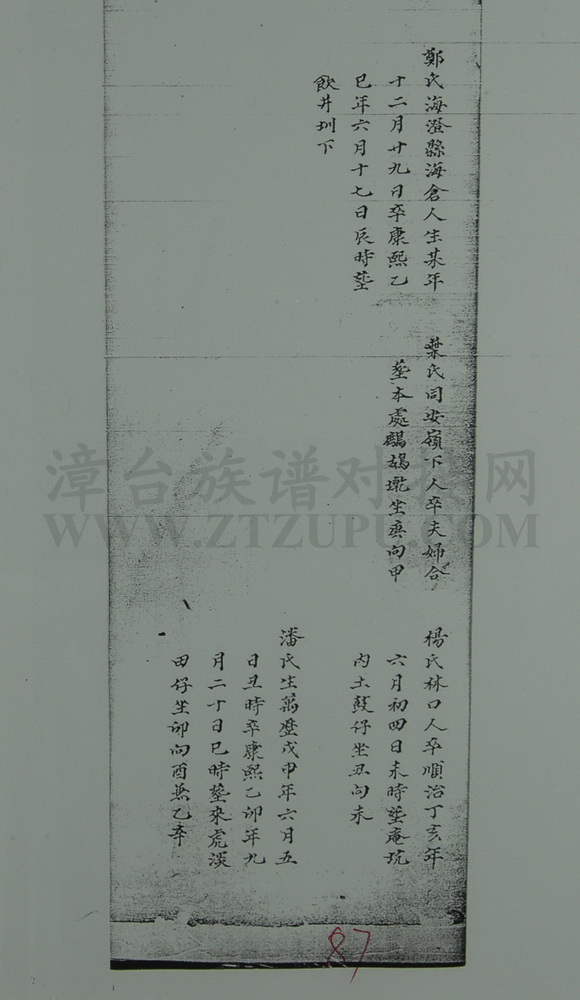 鄭氏海澄縣海倉人生某年
十二月廿九日卒康熙乙
巳年六月十七日辰時塟
飲井圳下
葉氏同安嶺下人卒夫婦合
塟本處鷓鴣墩坐庚向甲
楊氏林口人卒順治丁亥年
六月初四日未時塟庵坑
內土鼓仔坐丑向未
潘氏生萬歷戊申年六月五
日丑時卒康熙乙卯年九
月二十日巳時塟來虎漢
田仔坐卯向酉兼乙辛
漳台族谱对接网
WWW.ZTZUPU.COM
87